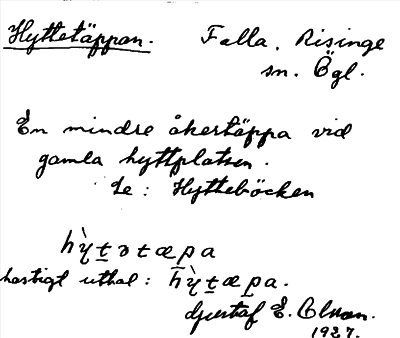 Hyttetäppan. Falla, Risinge
sn. Ögl.
En mindre åkertäppa vid
gamla hyttplatsen.
Se: Hytteböcken
hỳtətæpa
hastigt uttal: hỳtæpa.
Gustaf E. Olsson.
1927.